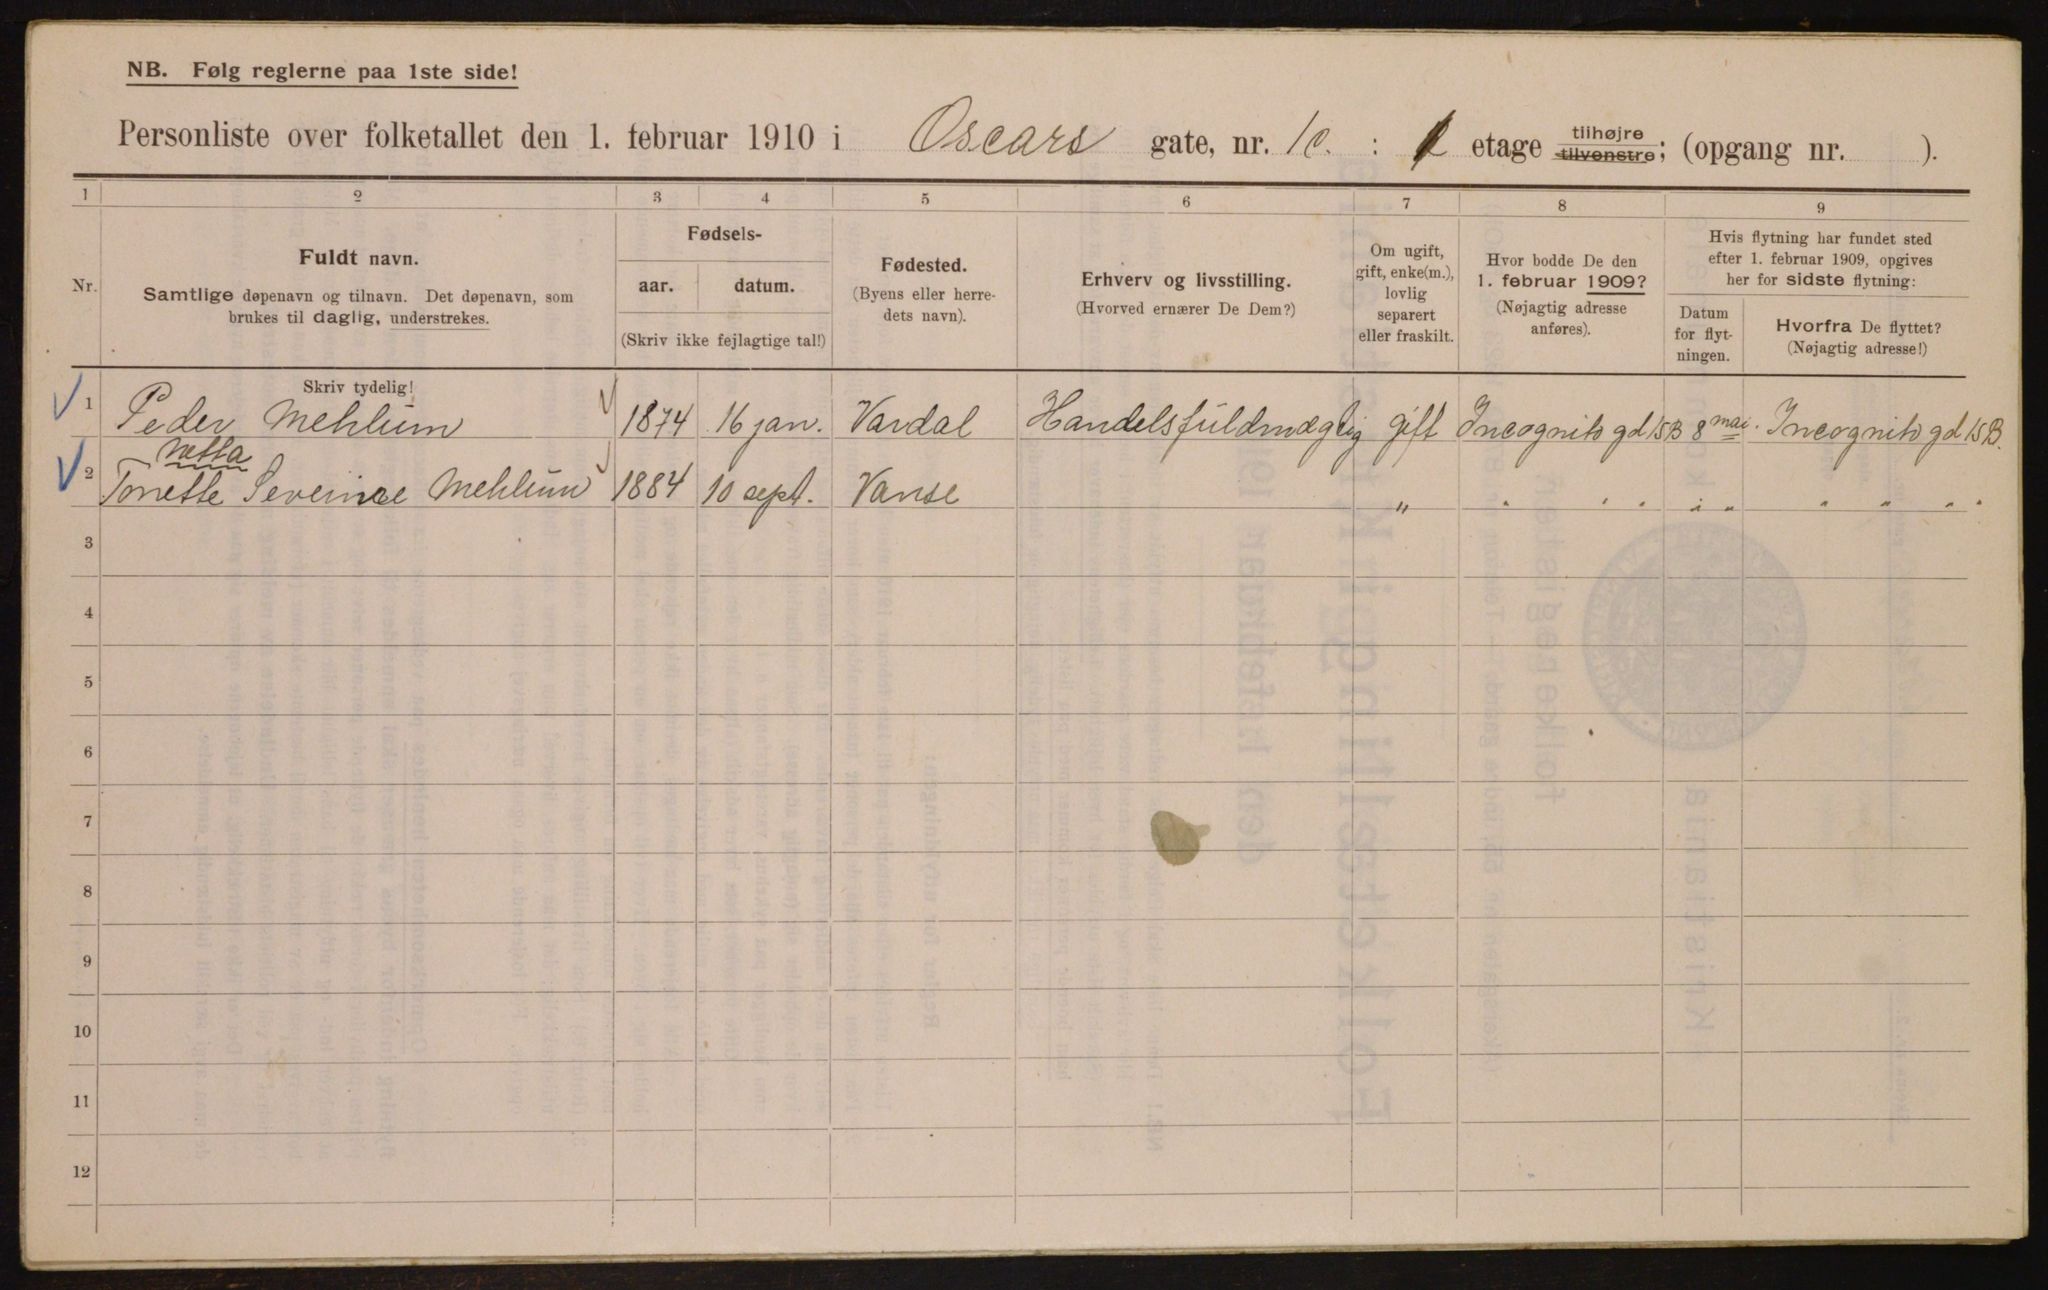 NB. Følg reglerne paa 1ste side!
Personliste over folketallet den 1. februar 1910 i Oscars gate, nr. 1c. : etage tilhøjre tilvenstre; (opgang nr. ).
1 2 3 4 5 6 7 8 9
Nr. Fuldt navn. Samtlige døpenavn og tilnavn. Det døpenavn, som brukes til daglig, understrekes.
Fødsels- aar. datum. (Skriv ikke fejlagtige tal!)
Fødested. (Byens eller herredets navn).
Erhverv og livsstilling. (Hvorved ernærer De Dem?)
Om ugift, gift, enke(m.), lovlig separert eller fraskilt.
Hvor bodde De den 1. februar 1909? (Nøjagtig adresse anføres).
Hvis flytning har fundet sted efter 1. februar 1909, opgives her for sidste flytning:
Datum for flytningen. Hvorfra De flyttet? (Nøjagtig adresse!)
Skriv tydelig!
1 Peder Mehlum 1874 16 jan. Vardal Handelsfuldmægtig gift Incognito gd 15B 8 mai. Incognito gd 15B.
Netta
2 Tonette Severine Mehlum 1884 10 sept. Vanse " " " " " " " " " "
3
4
5
6
7
8
9
10
11
12